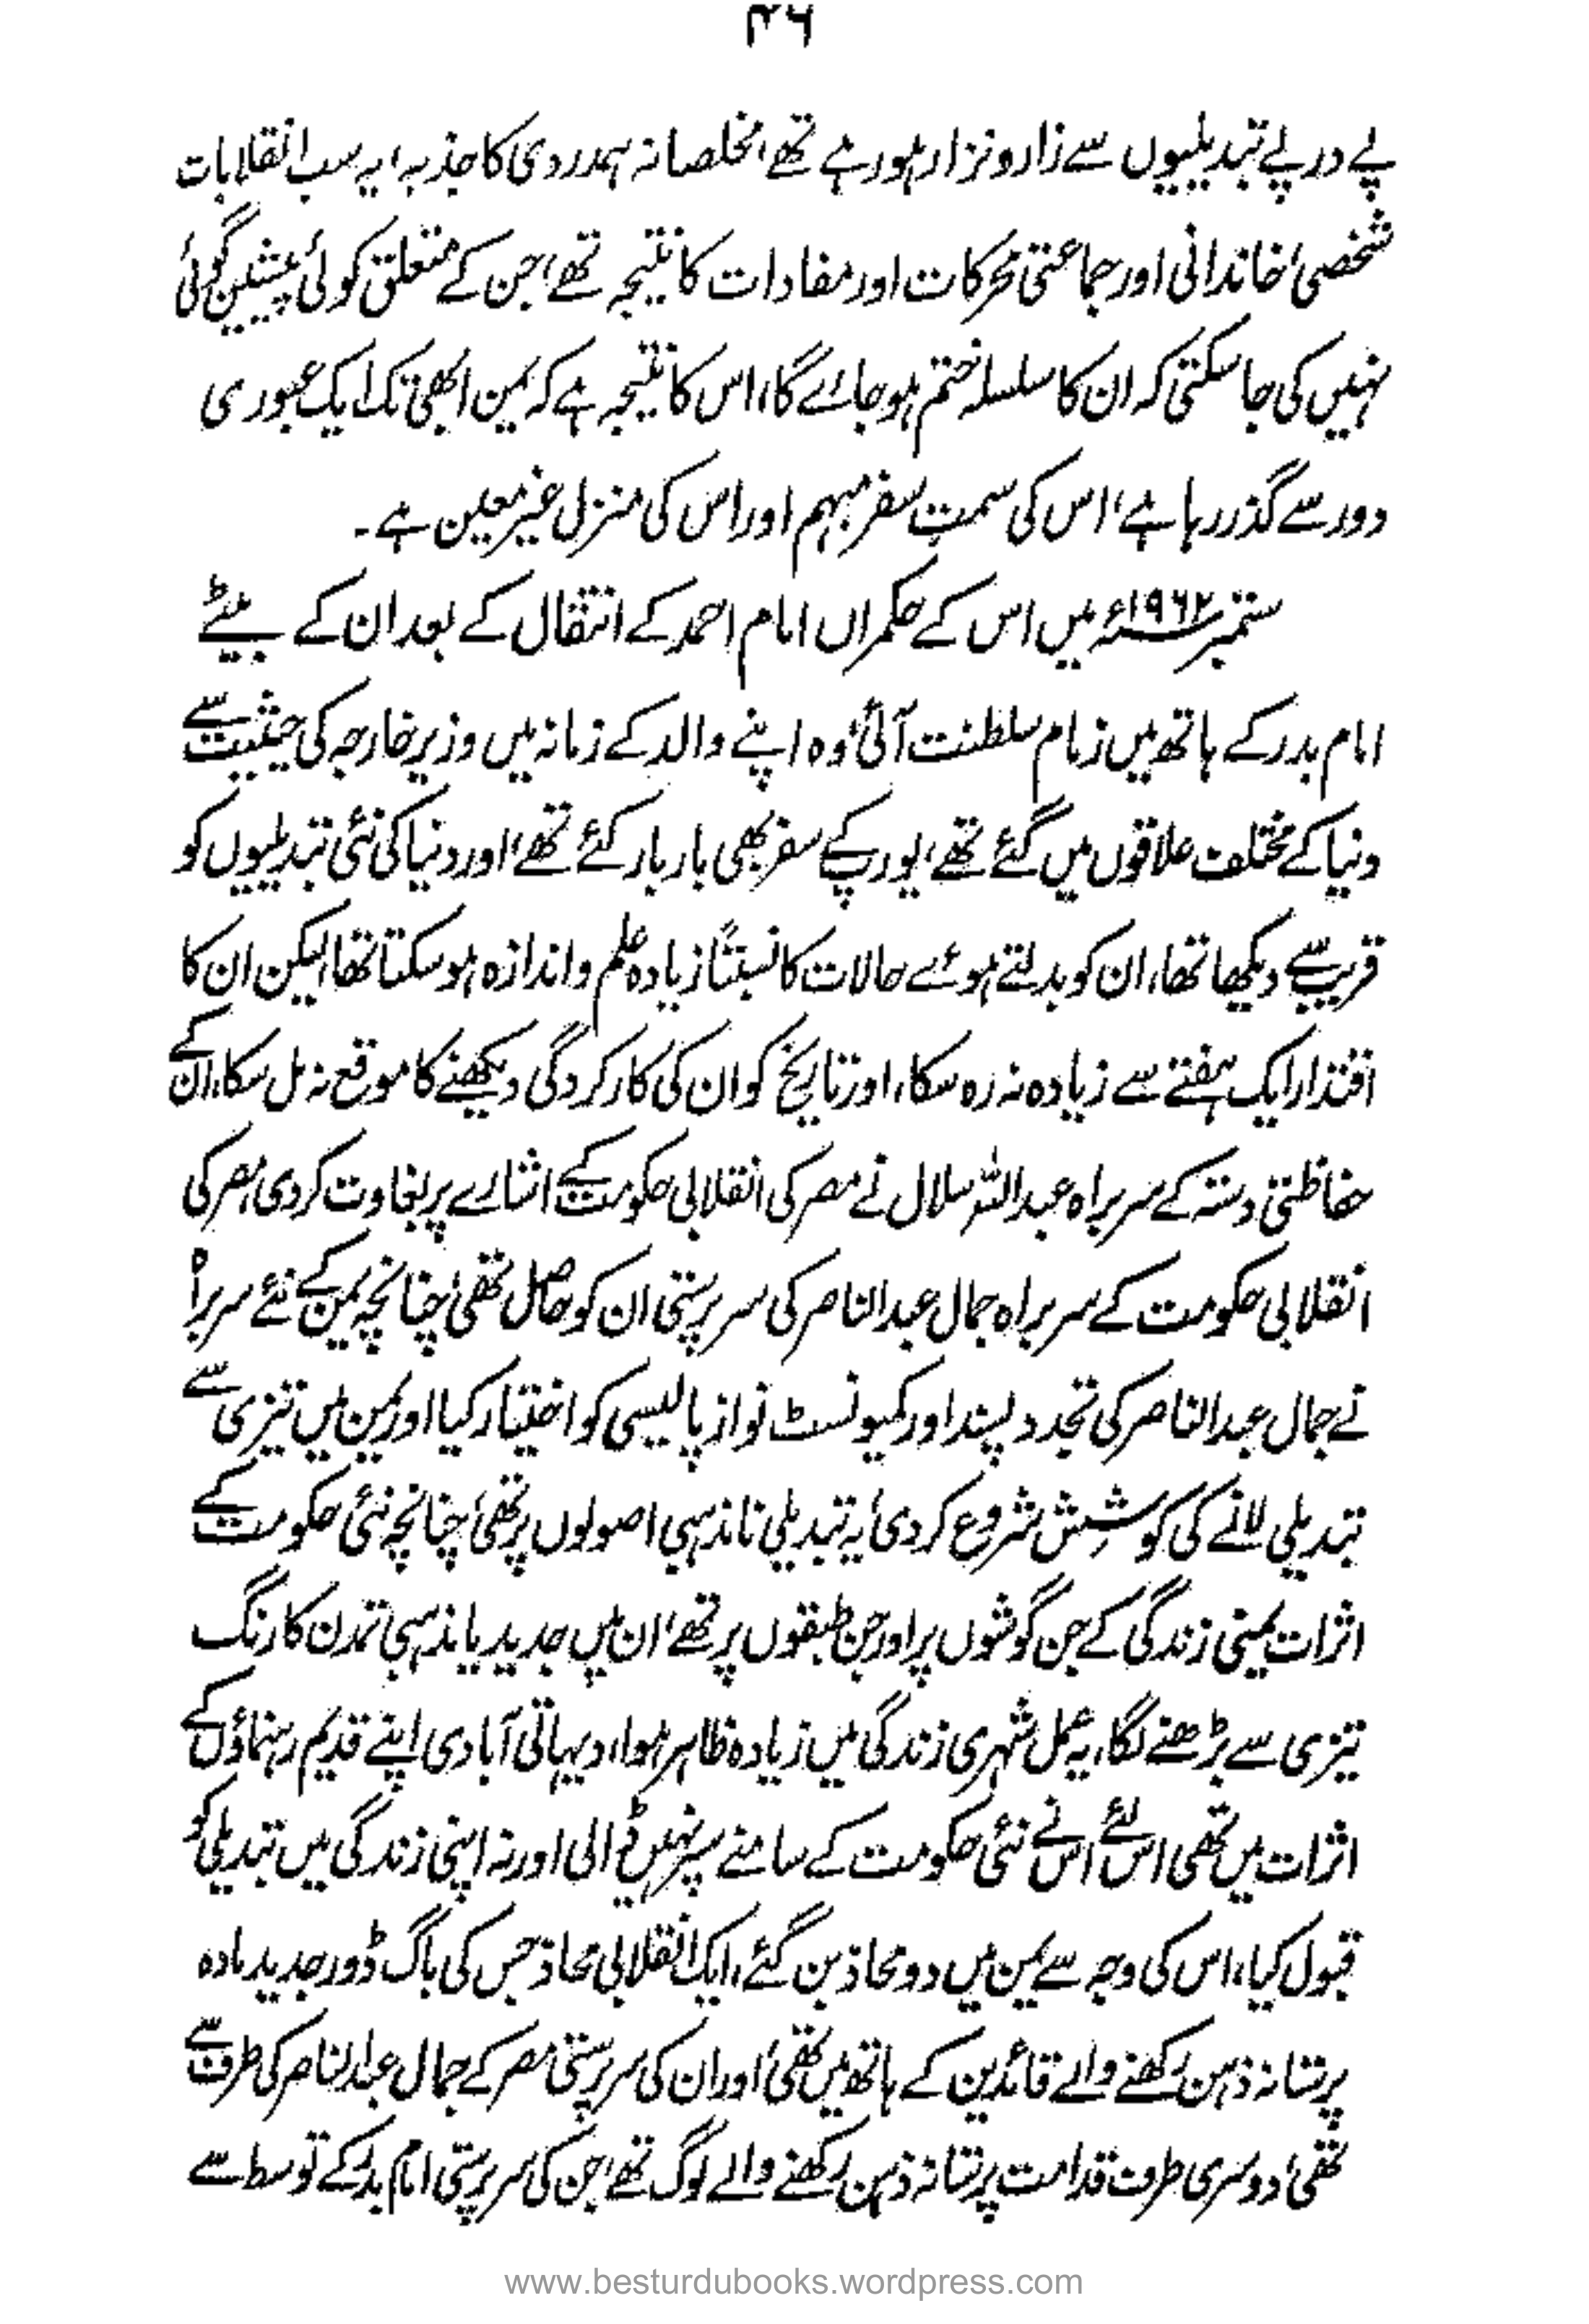 ۴۶
پے درپے تبدیلیوں سے زار ونزار ہورہے تھے، مخلصانہ ہمدردی کا جذبہ، یہ سب انقلابات
شخصی، خاندانی اور جماعتی محرکات اور مفادات کا نتیجہ تھے، جن کے متعلق کوئی پیشین گوئی
نہیں کی جاسکتی کہ ان کا سلسلہ ختم ہوجائے گا، اس کا نتیجہ ہے کہ یمن ابھی تک ایک عبوری
دور سے گذر رہا ہے، اس کی سمتِ سفر مبہم اور اس کی منزل غیر معین ہے۔
ستمبر ۱۹۶۲ء میں اس کے حکمراں امام احمد کے انتقال کے بعد ان کے بیٹے
امام بدر کے ہاتھ میں زمام سلطنت آئی، وہ اپنے والد کے زمانہ میں وزیر خارجہ کی حیثیت سے
دنیا کے مختلف علاقوں میں گئے تھے، یورپ کے سفر بھی بار بار کئے تھے، اور دنیا کی نئی تبدیلیوں کو
قریب سے دیکھا تھا، ان کو بدلتے ہوئے حالات کا نسبتاً زیادہ علم و اندازہ ہوسکتا تھا، لیکن ان کا
اقتدار ایک ہفتے سے زیادہ نہ رہ سکا، اور تاریخ کو ان کی کارکردگی دیکھنے کا موقع نہ مل سکا، ان کے
حفاظتی دستہ کے سربراہ عبداللہ سلال نے مصر کی انقلابی حکومت کے اشارے پر بغاوت کردی، مصر کی
انقلابی حکومت کے سربراہ جمال عبدالناصر کی سرپرستی ان کو حاصل تھی، چنانچہ یمن کے نئے سربراہ
نے جمال عبدالناصر کی تجدد پسند اور کمیونسٹ نواز پالیسی کو اختیار کیا اور یمن میں تیزی سے
تبدیلی لانے کی کوشِش شروع کردی، یہ تبدیلی نامذہبی اصولوں پر تھی، چنانچہ نئی حکومت کے
اثرات یمنی زندگی کے جن گوشوں پر اور جن طبقوں پر تھے، ان میں جدید یا مذہبی تمدن کا رنگ
تیزی سے بڑھنے لگا، یہ عمل شہری زندگی میں زیادہ ظاہر ہوا، دیہاتی آبادی اپنے قدیم رہنماؤں کے
اثرات میں تھی اس لئے اس نے نئی حکومت کے سامنے سپر نہیں ڈالی اور نہ اپنی زندگی میں تبدیلی کو
قبول کیا، اس کی وجہ سے یمن میں دو محاذ بن گئے، ایک انقلابی محاذ جس کی باگ ڈور جدید مادہ
پرستانہ ذہن رکھنے والے قائدین کے ہاتھ میں تھی، اور ان کی سرپرستی مصر کے جمال عبدالناصر کی طرف سے
تھی، دوسری طرف قدامت پرستانہ ذہن رکھنے والے لوگ تھے، جن کی سرپرستی امام بدر کے توسط سے
www.besturdubooks.wordpress.com